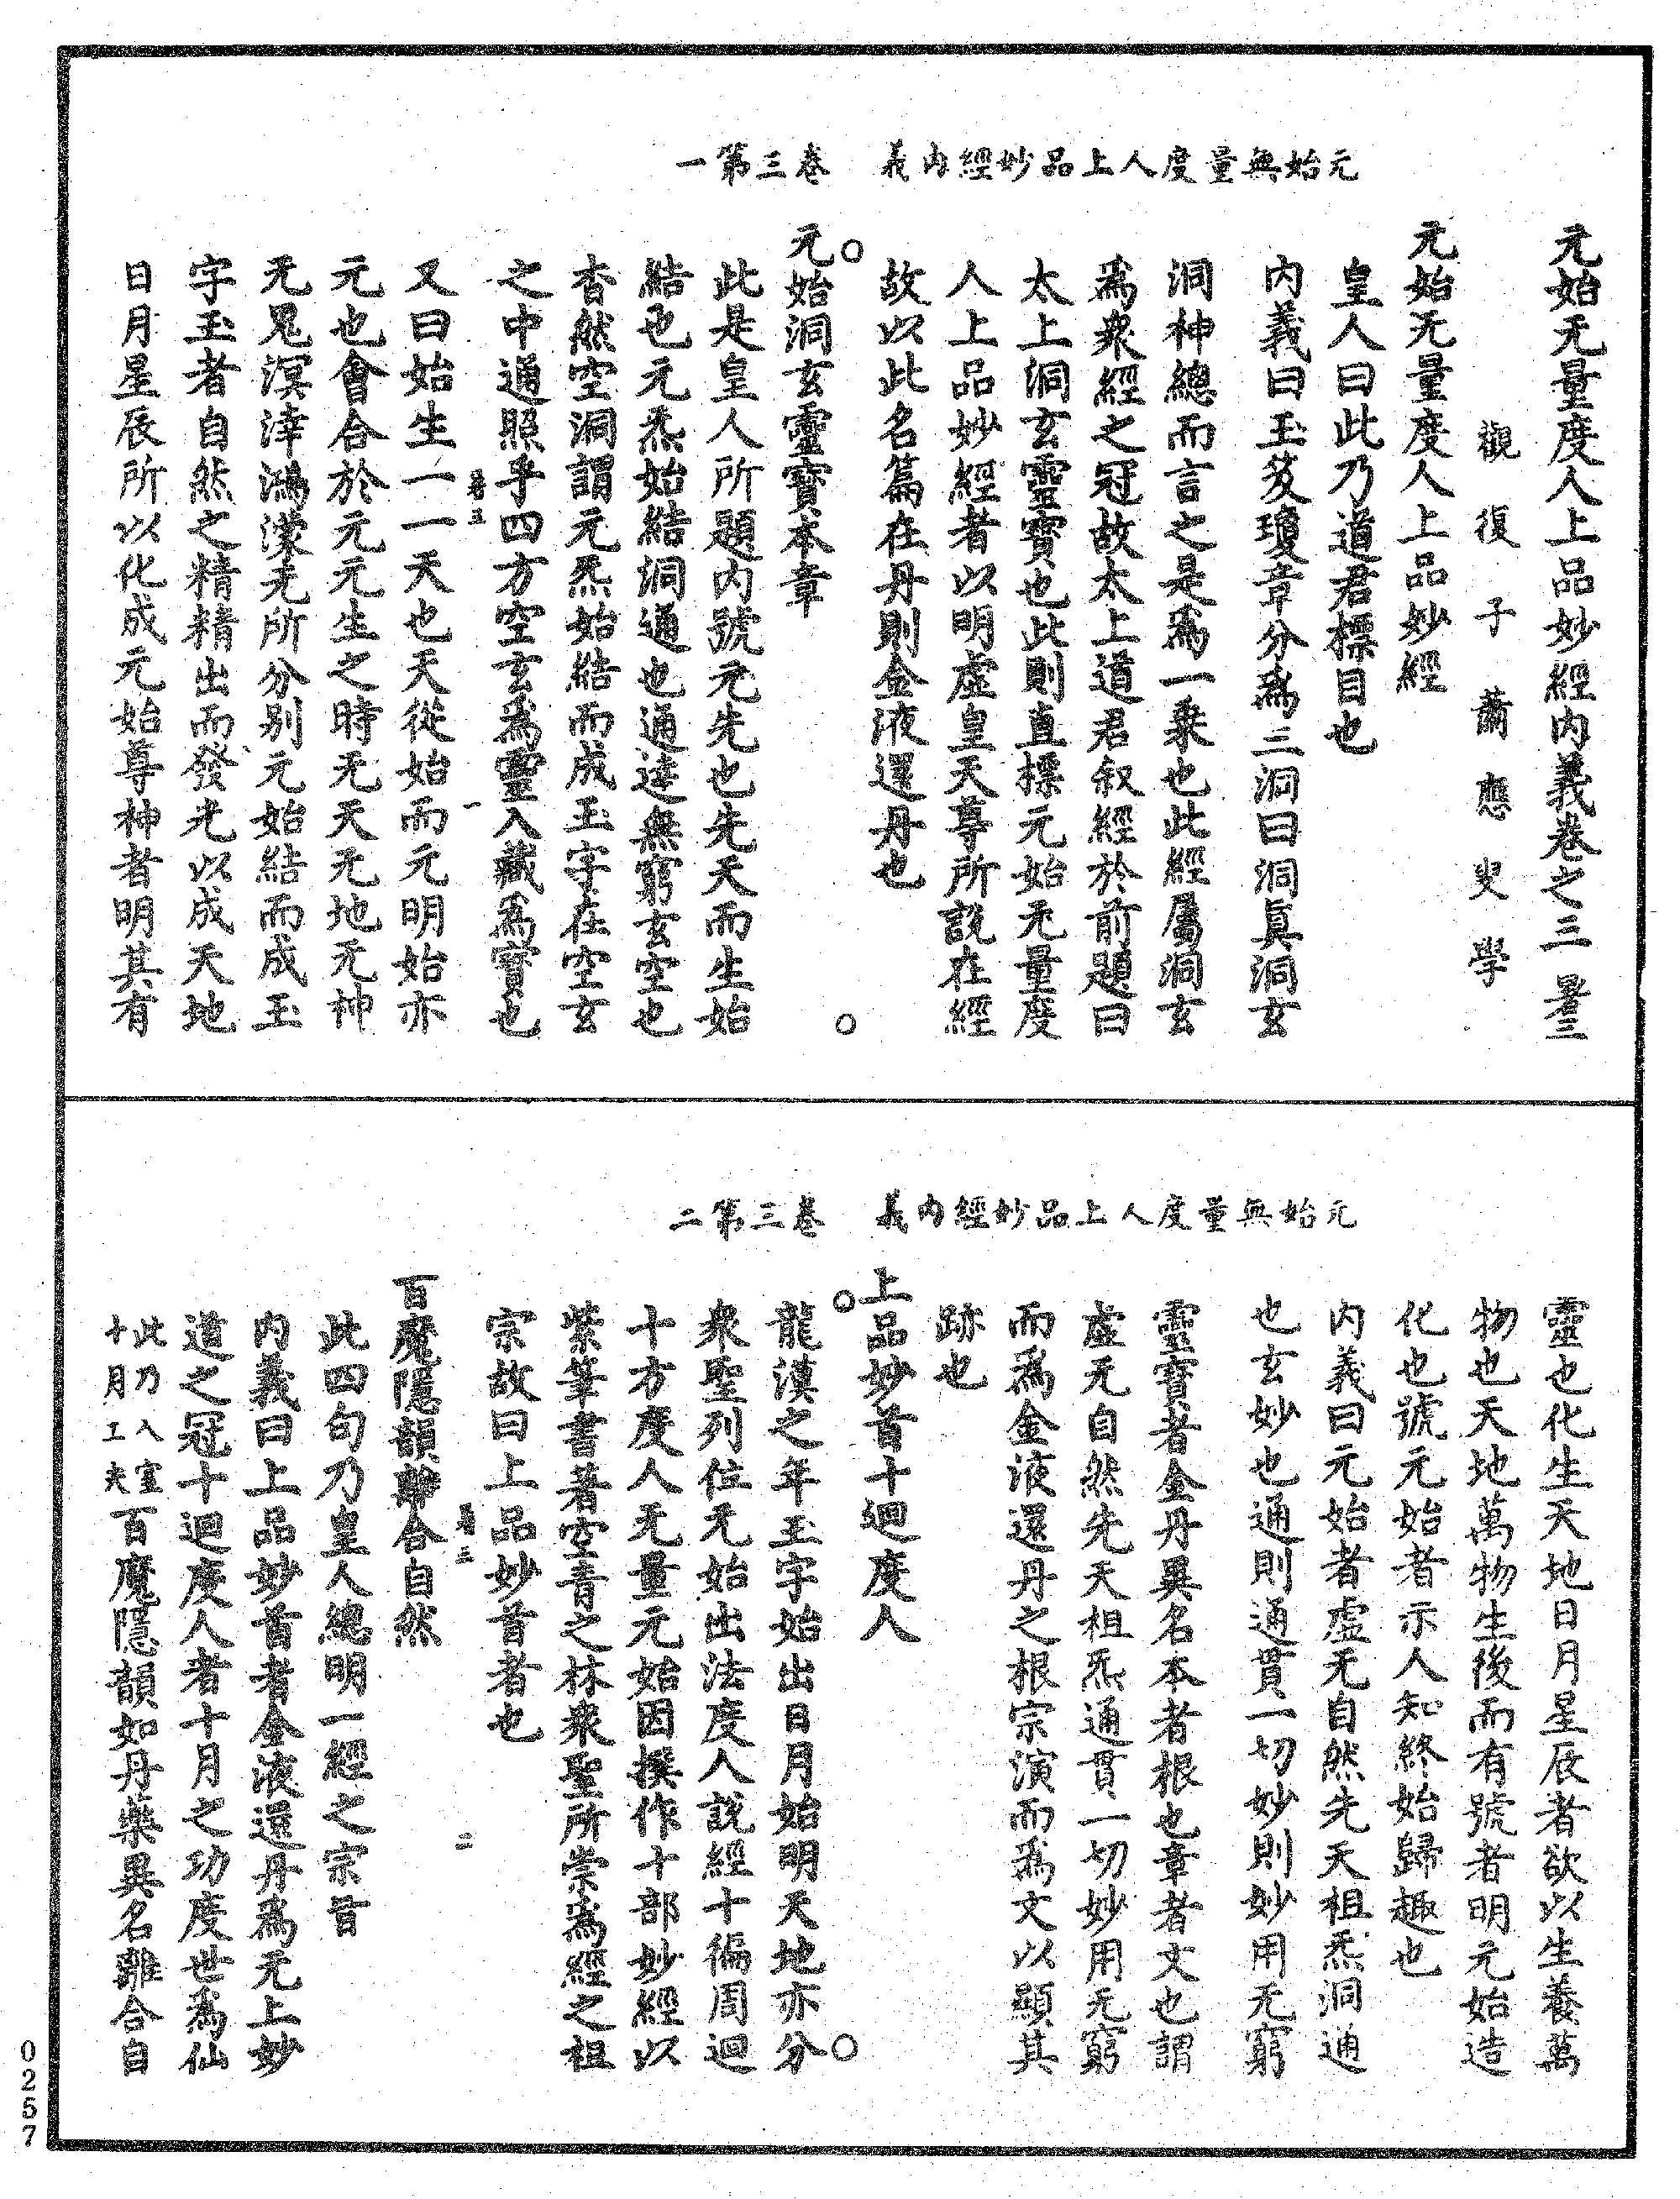 元始無量度人上品妙經內義　卷三第一
元始无量度人上品妙經內義卷之三　暑三
觀復子蕭應叟學
元始无量度人上品妙經
皇人曰此乃道君標目也
內義曰玉笈瓊章分爲三洞曰洞眞洞玄
洞神總而言之是爲一乘也此經屬洞玄
爲衆經之冠故太上道君叙經於前題曰
太上洞玄靈寶也此則直標元始无量度
人上品妙經者以明虛皇天尊所說在經
故以此名篇在丹則金液還丹也
元始洞玄靈寶本章
此是皇人所題內號元先也先天而生始
結也元炁始結洞通也通達無窮玄空也
杳然空洞謂元炁始結而成玉字在空玄
之中通照乎四方空玄爲靈入藏爲寶也
暑三　一
又曰始生一一天也天從始而元明始亦
元也會合於元元生之時无天无地无神
无鬼溟涬鴻濛无所分別元始結而成玉
字玉者自然之精精出而發光以成天地
日月星辰所以化成元始尊神者明其有
元始無量度人上品妙經內義　卷三第二
靈也化生天地日月星辰者欲以生養萬
物也天地萬物生後而有號者明元始造
化也號元始者示人知終始歸趣也
內義曰元始者虛无自然先天祖炁洞通
也玄妙也通則通貫一切妙則妙用无窮
靈寶者金丹異名本者根也章者文也謂
虛无自然先天祖炁通貫一切妙用无窮
而爲金液還丹之根宗演而爲文以顯其
跡也
上品妙首十迴度人
龍漢之年玉字始出日月始明天地亦分
衆聖列位元始出法度人說經十徧周迴
十方度人无量元始因撰作十部妙經以
紫筆書著空青之林衆聖所崇爲經之祖
宗故曰上品妙首者也
百魔隱韻離合自然
暑三　二
此四句乃皇人總明一經之宗旨
內義曰上品妙首者金液還丹爲无上妙
道之冠十迴度人者十月之功度世爲仙
此乃入室十月工夫百魔隱韻如丹藥異名離合自
0257